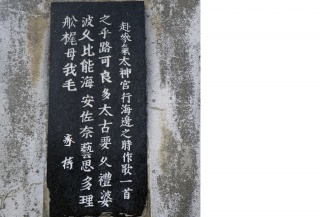 赴參氣太神宮行海邊之時作歌一首
之乎路可良多太古要久禮婆
波久比能海安佐奈藝思多理
舩梶母我毛